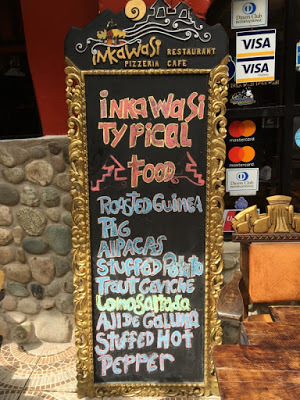 inkaWasi
RESTAURANT
PIZZERIA CAFE
inKa WaSi
TYPICAL
FOOD
ROASTED GUINEA
PIG
Alpacas
Stuffed Potato
Trout Ceviche
Lomo Saltado
Aji de Gallina
Stuffed Hot
Pepper
Diners Club
INTERNATIONAL
VISA
VISA
mastercard
mastercard
Diners Club